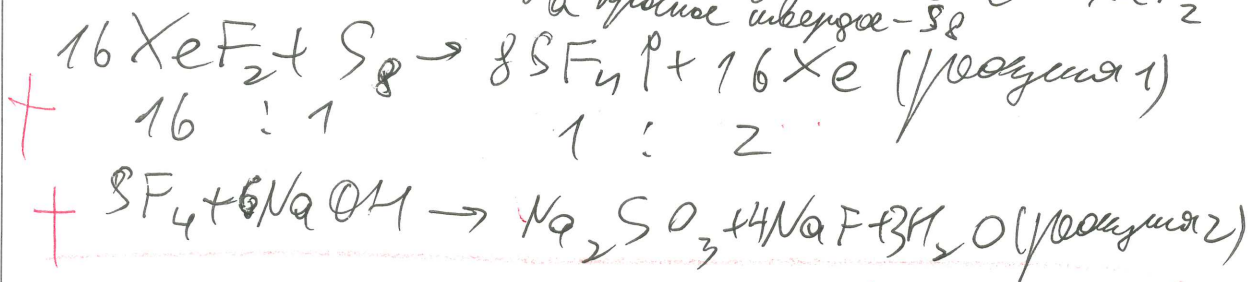 а простое твердое - S8
16XeF₂ + S₈ → 8SF₄↑ + 16Xe (реакция 1)
16 : 1 1 : 2
SF₄ + 6NaOH → Na₂SO₃ + 4NaF + 3H₂O (реакция 2)